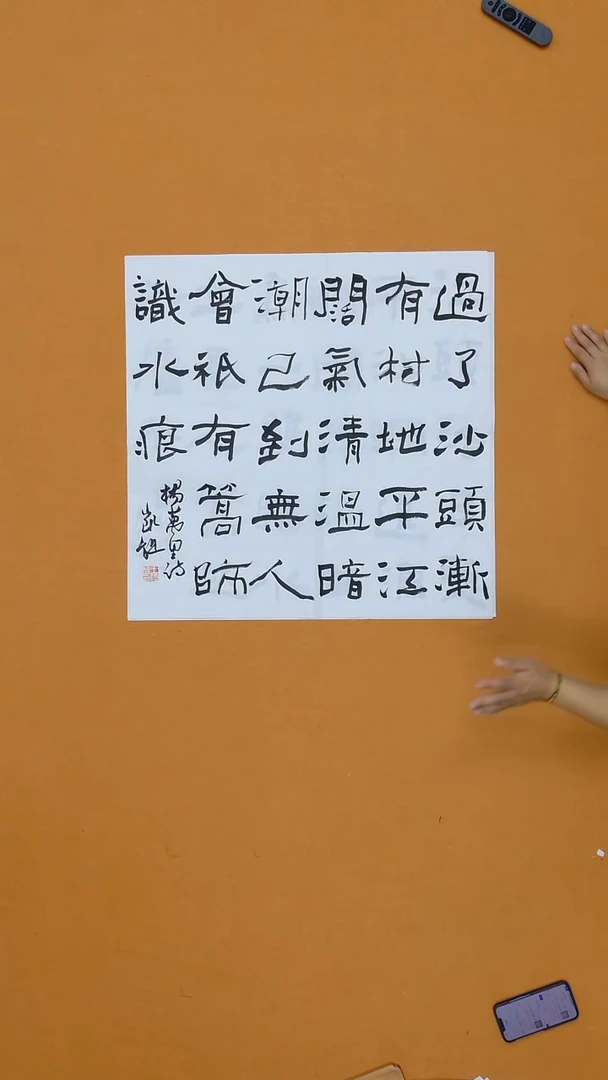 過了沙頭漸
有村地平江
闊氣清溫暗
潮已到無人
會祇有篙師
識水痕
楊萬里詩
凱